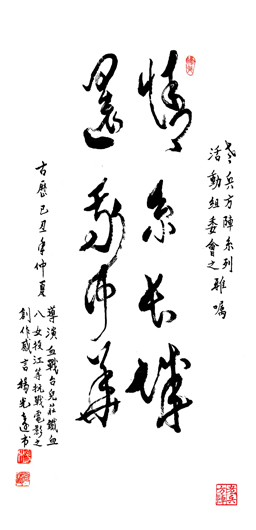 老兵方陣系列
活動組委會之雅囑
情系长城
還我中華
古歷己丑年仲夏
導演血戰台兒莊鐵血
八女投江等抗戰電影之
創作感言楊光遠书